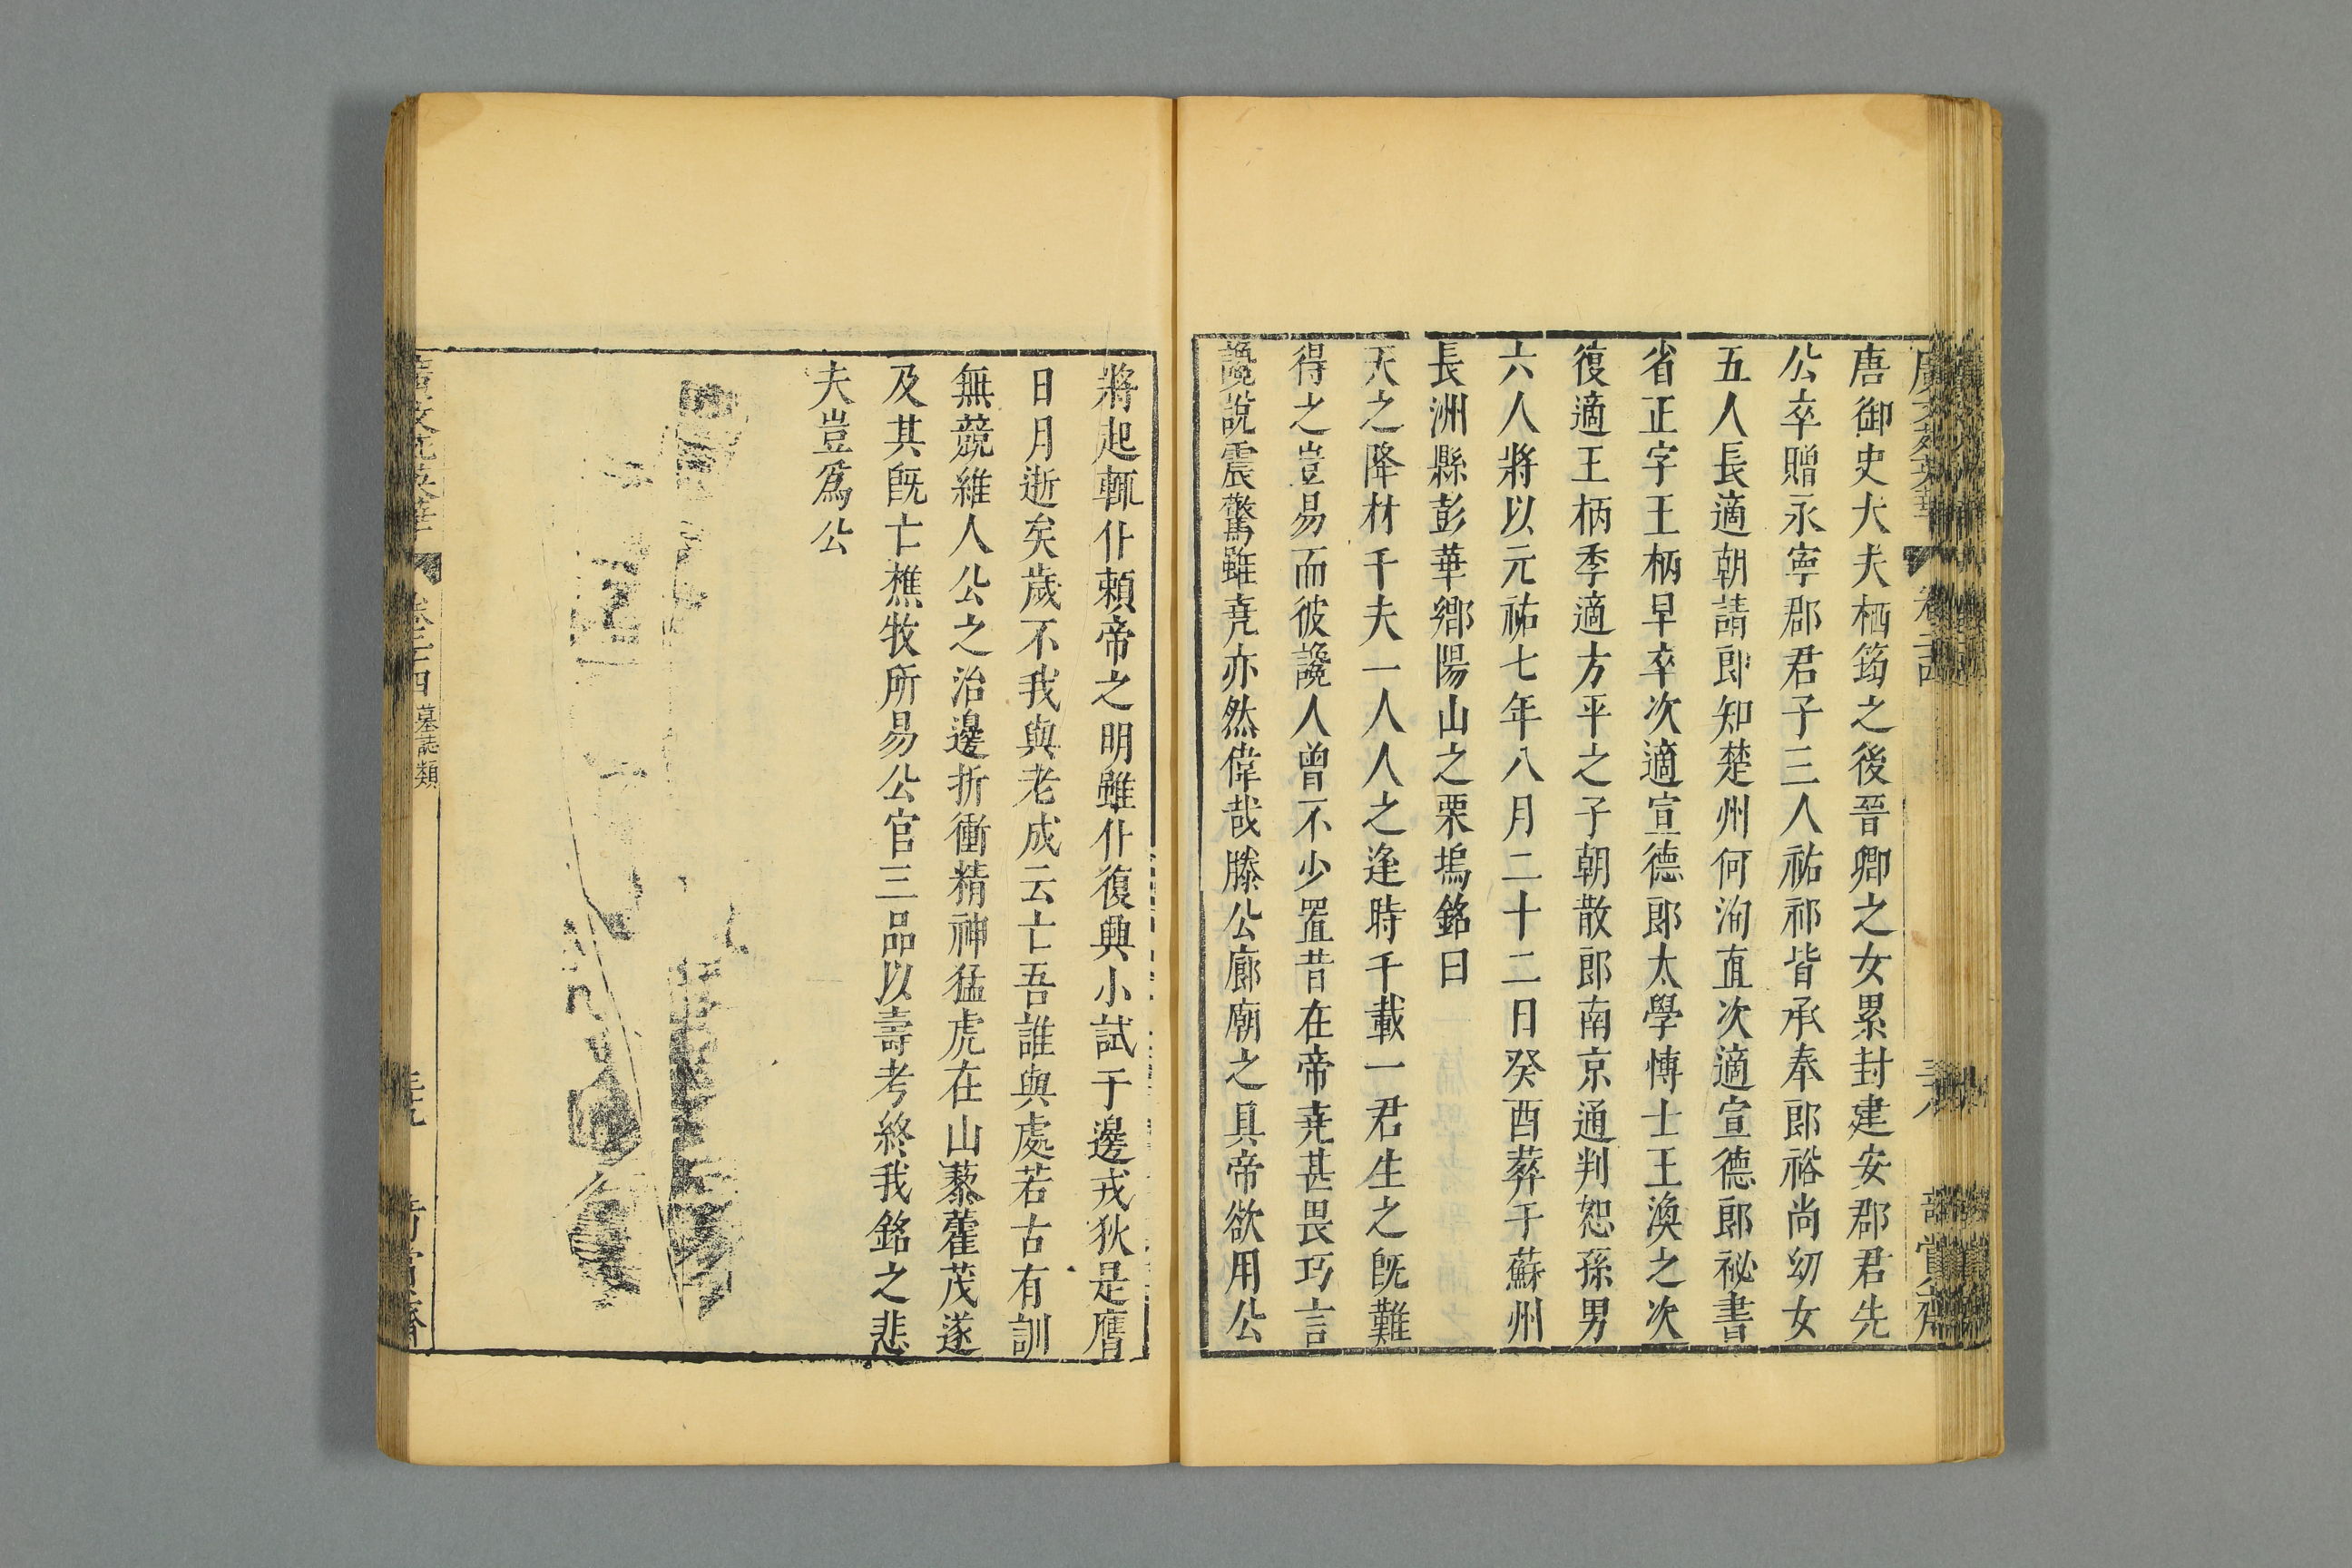 廣文苑英華
唐御史大夫栖筠之後晉卿之女累封建安郡君先
公卒贈永寧郡君子三人祐祁皆承奉郎裕尚幼女
五人長適朝請郎知楚州何洵直次適宣德郎祕書
省正字王柄早卒次適宣德郎太學博士王渙之次
復適王柄季適方平之子朝散郎南京通判恕孫男
六人將以元祐七年八月二十二日癸酉葬于蘇州
長洲縣彭華鄉陽山之栗塢銘曰
天之降材千夫一人人之逢時千載一君生之旣難
得之豈易而彼讒人曾不少置昔在帝堯甚畏巧言
讒說震驚雖堯亦然偉哉滕公廊廟之具帝欲用公
將起輒仆賴帝之明雖仆復興小試于邊戎狄是膺
日月逝矣歲不我與老成云亡吾誰與處若古有訓
無競維人公之治邊折衝精神猛虎在山藜藿茂遂
及其旣亡樵牧所易公官三品以壽考終我銘之悲
夫豈爲公
卷三四 墓誌類